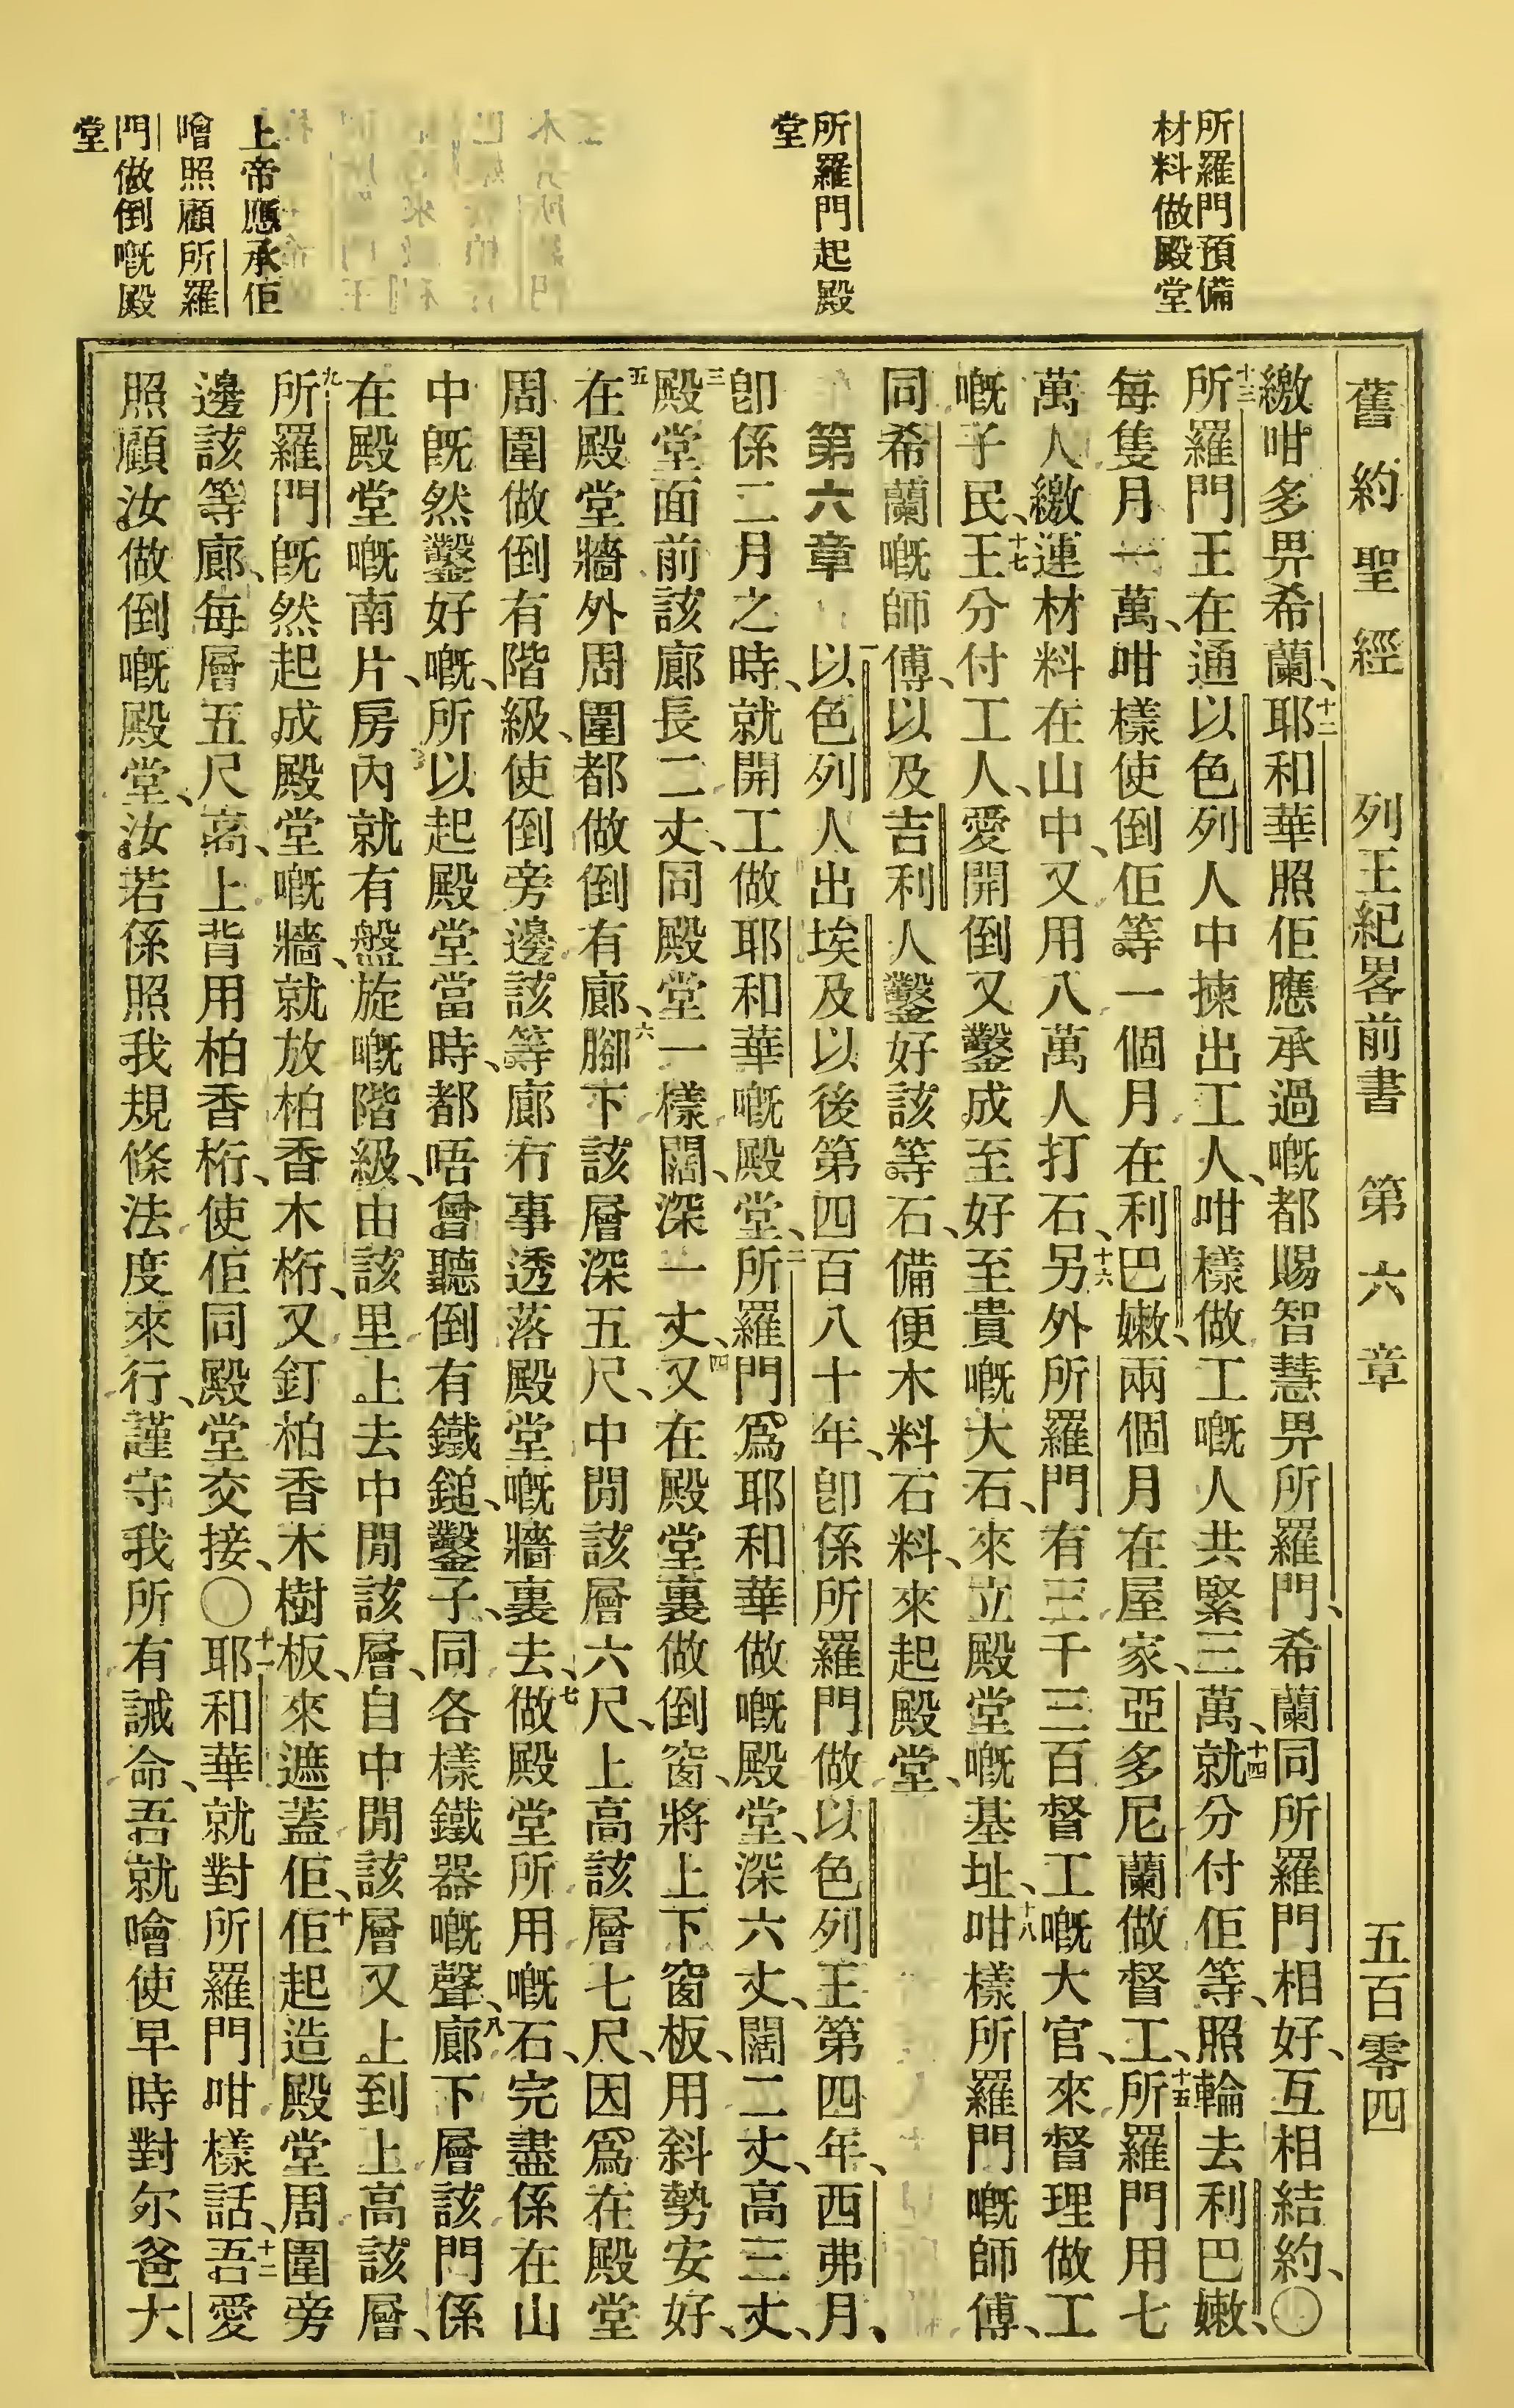 舊約聖經 列王紀畧前書 第六章 五百零四
所羅門預備
材料做殿堂
所羅門起殿
堂
上帝應承佢
噲照顧所羅
門做倒嘅殿
堂
繳咁多畀希蘭、十二耶和華照佢應承過嘅都賜智慧畀所羅門、希蘭同所羅門相好、互相結約、〇
十三所羅門王在通以色列人中揀出工人、咁樣做工嘅人共緊三萬、十四就分付佢等、照輪去利巴嫩、
每隻月一萬、咁樣使倒佢等一個月在利巴嫩、兩個月在屋家、亞多尼蘭做督工、十五所羅門用七
萬人繳連材料在山中、又用八萬人打石、十六另外所羅門有三千三百督工嘅大官、來督理做工
嘅子民、十七王分付工人、愛開倒又鑿成至好至貴嘅大石、來立殿堂嘅基址、十八咁樣所羅門嘅師傅、
同希蘭嘅師傅、以及吉利人鑿好該等石、備便木料石料、來起殿堂、
第六章 一以色列人出埃及以後第四百八十年、卽係所羅門做以色列王第四年、西弗月、
卽係二月之時、就開工做耶和華嘅殿堂、二所羅門爲耶和華做嘅殿堂、深六丈、闊二丈、高三丈、
三殿堂面前該廊長二丈、同殿堂一樣闊、深一丈、四又在殿堂裏做倒窗、將上下窗板、用斜勢安好、
五在殿堂牆外周圍都做倒有廊、六腳下該層深五尺、中閒該層六尺、上高該層七尺、因爲在殿堂
周圍做倒有階級、使倒旁邊該等廊冇事透落殿堂嘅牆裏去、七做殿堂所用嘅石、完盡係在山
中旣然鑿好嘅、所以起殿堂當時、都唔曾聽倒有鐵鎚、鑿子、同各樣鐵器嘅聲、八廊下層該門係
在殿堂嘅南片、房內就有盤旋嘅階級、由該里上去中閒該層、自中閒該層又上到上高該層、
九所羅門旣然起成殿堂嘅牆、就放柏香木桁、又釘柏香木樹板、來遮蓋佢、十佢起造殿堂周圍旁
邊該等廊、每層五尺高、上背用柏香桁、使佢同殿堂交接、〇十一耶和華就對所羅門咁樣話、十二吾愛
照顧汝做倒嘅殿堂、汝若係照我規條法度來行、謹守我所有誡命、吾就噲使早時對尔爸大